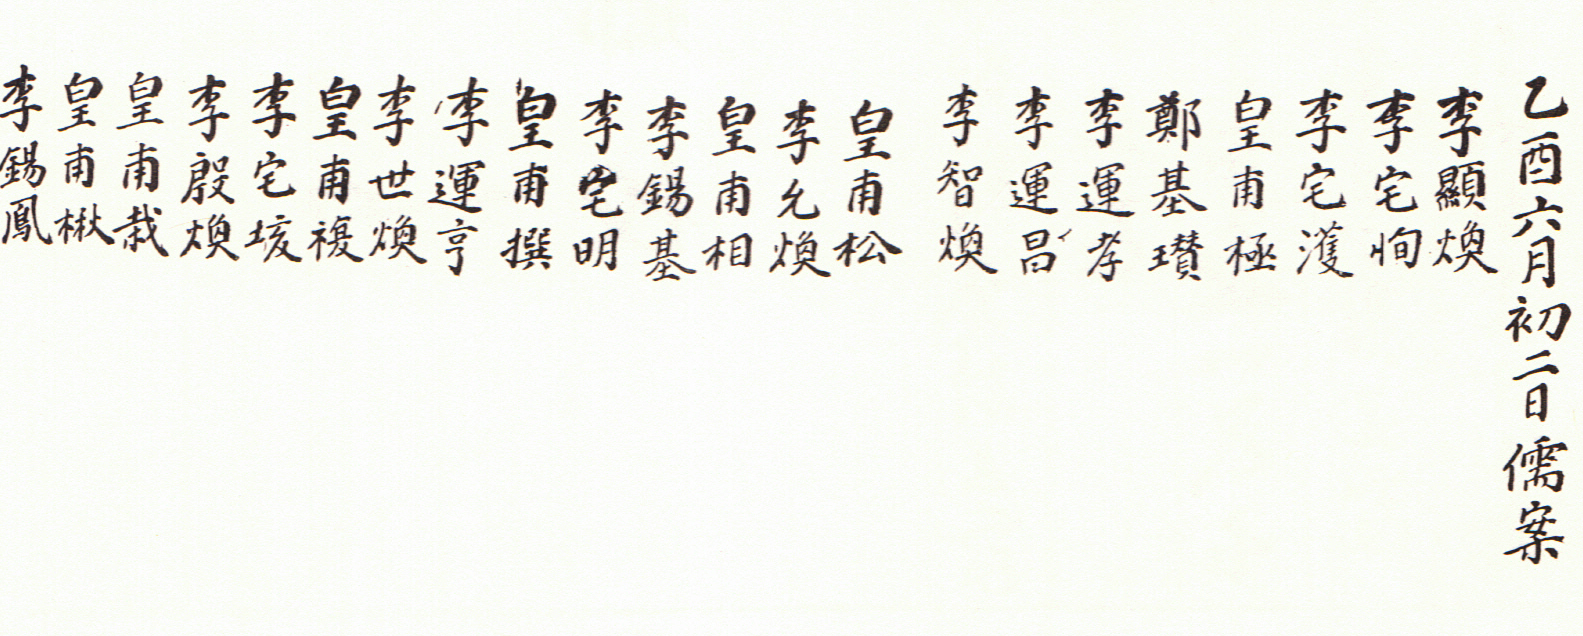 乙酉六月初二日儒案
李顯煥
李宅恂
李宅濩
皇甫極
鄭基瓚
李運孝
李運昌
李智煥
皇甫松
李允煥
皇甫相
李錫基
李宅明
皇甫撰
李運亨
李世煥
皇甫複
李宅垵
李殷煥
皇甫栽
皇甫楸
李錫鳳